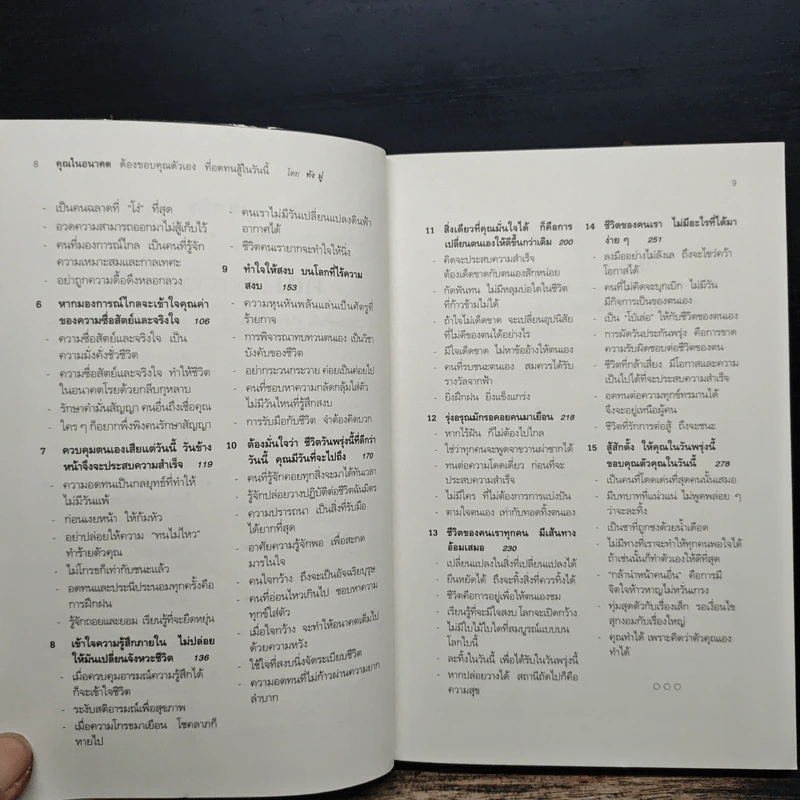 8 คุณในอนาคต ต้องขอบคุณตัวเอง ที่อดทนสู้ในวันนี้ โดย ทัง มู่
- เป็นคนฉลาดที่ "โง่" ที่สุด
- อวดความสามารถออกมาไม่สู้เก็บไว้
- คนที่มองการณ์ไกล เป็นคนที่รู้จัก
ความเหมาะสมและกาลเทศะ
- อย่าถูกความดื้อดึงหลอกลวง
6 หากมองการณ์ไกลจะเข้าใจคุณค่า
ของความซื่อสัตย์และจริงใจ 106
- ความซื่อสัตย์และจริงใจ เป็น
ความมั่งคั่งชั่วชีวิต
- ความซื่อสัตย์และจริงใจ ทำให้ชีวิต
ในอนาคตโรยด้วยกลีบกุหลาบ
- รักษาคำมั่นสัญญา คนอื่นถึงเชื่อคุณ
- ใคร ๆ ก็อยากพึ่งพิงคนรักษาสัญญา
7 ควบคุมตนเองเสียแต่วันนี้ วันข้าง
หน้าจึงจะประสบความสำเร็จ 119
- ความอดทนเป็นกลยุทธ์ที่ทำให้
ไม่มีวันแพ้
- ก่อนเงยหน้า ให้ก้มหัว
- อย่าปล่อยให้ความ "ทนไม่ไหว"
ทำร้ายตัวคุณ
- ไม่โกรธก็เท่ากับชนะแล้ว
- อดทนและประนีประนอมทุกครั้งคือ
การฝึกฝน
- รู้จักถอยและยอม เรียนรู้ที่จะยืดหยุ่น
8 เข้าใจความรู้สึกภายใน ไม่ปล่อย
ให้มันเปลี่ยนจังหวะชีวิต 136
- เมื่อควบคุมอารมณ์ความรู้สึกได้
ก็จะเข้าใจชีวิต
- ระงับสติอารมณ์เพื่อสุขภาพ
- เมื่อความโกรธมาเยือน โชคลาภก็
หายไป
- คนเราไม่มีวันเปลี่ยนแปลงดินฟ้า
อากาศได้
- ชีวิตคนเรายากจะทำใจให้นิ่ง
9 ทำใจให้สงบ บนโลกที่ไร้ความ
สงบ 153
- ความหุนหันพลันแล่นเป็นศัตรูที่
ร้ายกาจ
- การพิจารณาทบทวนตนเอง เป็นวิชา
บังคับของชีวิต
- อย่ากระวนกระวาย ค่อยเป็นค่อยไป
- คนที่ชอบหาความกลัดกลุ้มใส่ตัว
ไม่มีวันไหนที่รู้สึกสงบ
- การรับมือกับชีวิต จำต้องคิดบวก
10 ต้องมั่นใจว่า ชีวิตวันพรุ่งนี้ที่ดีกว่า
วันนี้ คุณมีวันที่จะไปถึง 170
- คนที่รู้จักคอยทุกสิ่งจะมาได้ทันเวลา
- รู้จักปล่อยวางปฏิบัติต่อชีวิตฉันมิตร
- ความปรารถนา เป็นสิ่งที่รับมือ
ได้ยากที่สุด
- อาศัยความรู้จักพอ เพื่อสะกด
มารในใจ
- คนใจกว้าง ถึงจะเป็นอัจฉริยบุรุษ
- คนที่อ่อนไหวเกินไป ชอบหาความ
ทุกข์ใส่ตัว
- เมื่อใจกว้าง จะทำให้อนาคตเต็มไป
ด้วยความหวัง
- ใช้ใจที่สงบนิ่งจัดระเบียบชีวิต
- ความอดทนที่ไม่ก้าวผ่านความยาก
ลำบาก
9
11 สิ่งเดียวที่คุณมั่นใจได้ ก็คือการ
เปลี่ยนตนเองให้ดีขึ้นกว่าเดิม 200
- คิดจะประสบความสำเร็จ
ต้องเด็ดขาดกับตนเองสักหน่อย
- กัดฟันทน ไม่มีหลุมบ่อใดในชีวิต
ที่ก้าวข้ามไม่ได้
- ถ้าใจไม่เด็ดขาด จะเปลี่ยนอุปนิสัย
ที่ไม่ดีของตนได้อย่างไร
- มีใจเด็ดขาด ไม่หาข้ออ้างให้ตนเอง
- คนที่รบชนะตนเอง สมควรได้รับ
รางวัลจากฟ้า
- ยิ่งฝึกฝน ยิ่งแข็งแกร่ง
12 รุ่งอรุณมักรอคอยคนมาเยือน 218
- หากไร้ฝัน ก็ไม่ต้องไปไกล
- ใช่ว่าทุกคนจะพูดจาขวานผ่าซากได้
- ทนต่อความโดดเดี่ยว ก่อนที่จะ
ประสบความสำเร็จ
- ไม่มีใคร ที่ไม่ต้องการการแบ่งปัน
- ตามใจตนเอง เท่ากับทอดทิ้งตนเอง
13 ชีวิตของคนเราทุกคน มีเส้นทาง
อ้อมเสมอ 230
- เปลี่ยนแปลงในสิ่งที่เปลี่ยนแปลงได้
- ยืนหยัดได้ ถึงจะทิ้งสิ่งที่ควรทิ้งได้
- ชีวิตคือการอยู่เพื่อให้ตนเองชม
- เรียนรู้ที่จะมีใจสงบ โลกจะเปิดกว้าง
- ไม่มีใบไม้ใบใดที่สมบูรณ์แบบบน
โลกใบนี้
- ละทิ้งในวันนี้ เพื่อได้รับในวันพรุ่งนี้
- หากปล่อยวางได้ สถานีถัดไปก็คือ
ความสุข
14 ชีวิตของคนเรา ไม่มีอะไรที่ได้มา
ง่าย ๆ 251
- ลงมืออย่างไม่ลังเล ถึงจะไขว่คว้า
โอกาสได้
- คนที่ไม่คิดจะบุกเบิก ไม่มีวัน
มีกิจการเป็นของตนเอง
- เป็น "โป๋เล่อ" ให้กับชีวิตของตนเอง
- การผัดวันประกันพรุ่ง คือการขาด
ความรับผิดชอบต่อชีวิตของตน
- ชีวิตที่กล้าเสี่ยง มีโอกาสและความ
เป็นไปได้ที่จะประสบความสำเร็จ
- อดทนต่อความทุกข์ทรมานได้
จึงจะอยู่เหนือผู้คน
- ชีวิตที่รักการต่อสู้ ถึงจะชนะ
15 สู้สักตั้ง ให้คุณในวันพรุ่งนี้
ขอบคุณตัวคุณในวันนี้ 278
- เป็นคนที่โดดเด่นที่สุดคนนั้นเสมอ
- มีบทบาทที่แน่วแน่ ไม่พูดพล่อย ๆ
ว่าจะละทิ้ง
- เป็นชาที่ถูกชงด้วยน้ำเดือด
- ไม่มีทางที่เราจะทำให้ทุกคนพอใจได้
ถ้าเช่นนั้นก็ทำตัวเองให้ดีที่สุด
- "กล้าบ้าหน้าคนอื่น" คือการมี
จิตใจห้าวหาญไม่หวั่นเกรง
- ทุ่มสุดตัวกับเรื่องเล็ก รอเงื่อนไข
สุกงอมกับเรื่องใหญ่
- คุณทำได้ เพราะคิดว่าตัวคุณเอง
ทำได้